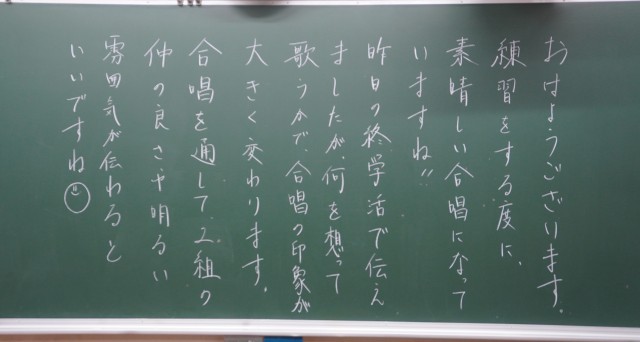 おはようございます。
練習をする度に、
素晴しい合唱になって
いますね!!
昨日の終学活で伝え
ましたが、何を想って
歌うかで、合唱の印象が
大きく変わります。
合唱を通して、2組の
仲の良さや明るい
雰囲気が伝わると
いいですね